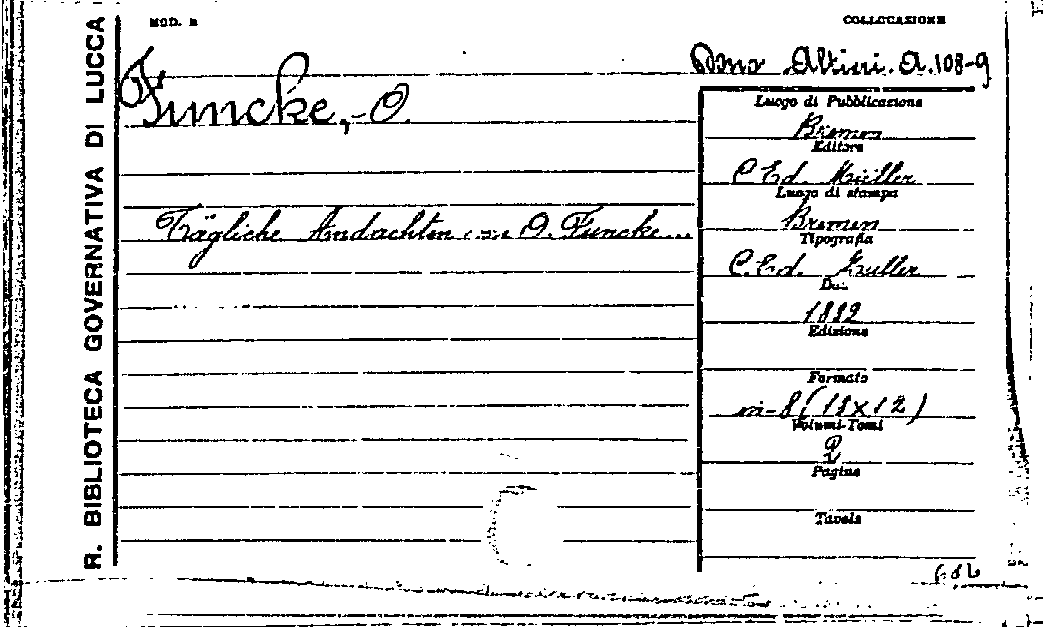 R. BIBLIOTECA GOVERNATIVA DI LUCCA
MOD. B
COLLOCAZIONE
Dono Altini. A. 108-9
Funcke, O.
Tägliche Andachten von O. Funcke...
Luogo di Pubblicazione
Bremen
Editore
C. Ed. Müller
Luogo di stampa
Bremen
Tipografia
C. Ed.
Data
1882
Edizione
Formato
in-8 (18x12)
Volumi-Tomi
2
Pagine
Tavole